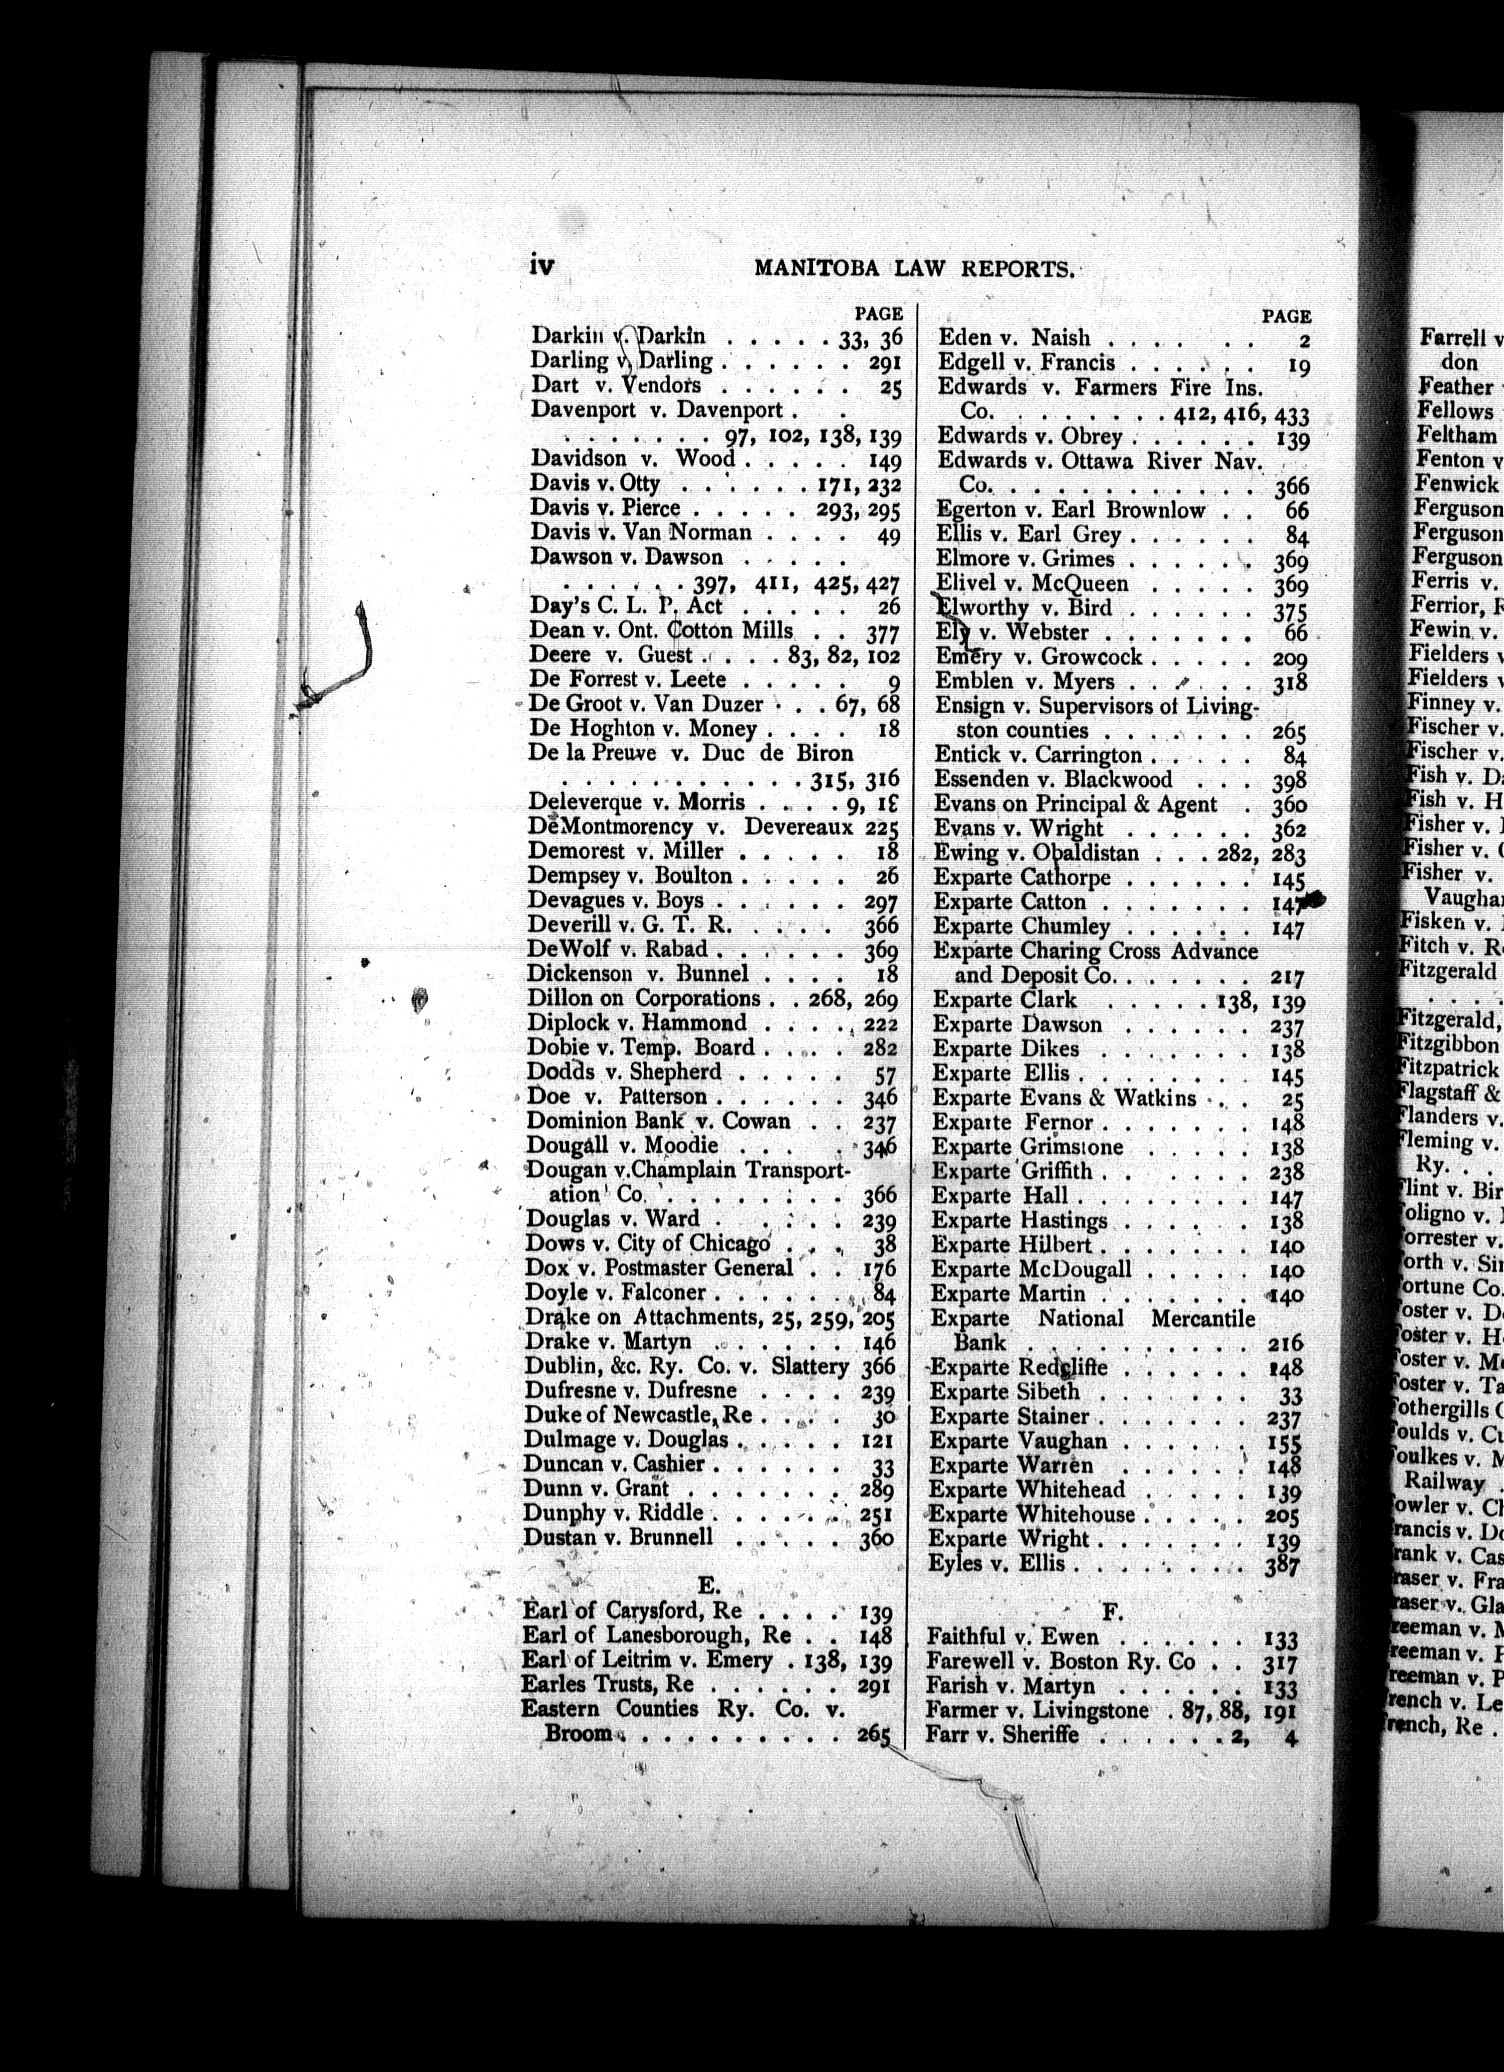 iv MANITOBA LAW REPORTS.
PAGE
Darkin v. Darkin . . . . . 33, 36
Darling v. Darling . . . . . . 291
Dart v. Vendors . . . . . . 25
Davenport v. Davenport . .
. . . . . . . 97, 102, 138, 139
Davidson v. Wood . . . . . 149
Davis v. Otty . . . . . . 171, 232
Davis v. Pierce . . . . . 293, 295
Davis v. Van Norman . . . . 49
Dawson v. Dawson . . . . .
. . . . . . 397, 411, 425, 427
Day's C. L. P. Act . . . . . 26
Dean v. Ont. Cotton Mills . . 377
Deere v. Guest . . . . 83, 82, 102
De Forrest v. Leete . . . . . 9
De Groot v. Van Duzer . . . 67, 68
De Hoghton v. Money . . . . 18
De la Preuve v. Duc de Biron
. . . . . . . . . . . 315, 316
Deleverque v. Morris . . . . 9,
DeMontmorency v. Devereaux 225
Demorest v. Miller . . . . . 18
Dempsey v. Boulton . . . . . 26
Devagues v. Boys . . . . . . 297
Deverill v. G. T. R. . . . . 366
DeWolf v. Rabad . . . . . . 369
Dickenson v. Bunnel . . . . 18
Dillon on Corporations . . 268, 269
Diplock v. Hammond . . . . 222
Dobie v. Temp. Board . . . . 282
Dodds v. Shepherd . . . . . 57
Doe v. Patterson . . . . . . 346
Dominion Bank v. Cowan . . 237
Dougall v. Moodie . . . . 346
Dougan v.Champlain Transport-
ation Co. . . . . . . . . 366
Douglas v. Ward . . . . . 239
Dows v. City of Chicago . . . 38
Dox v. Postmaster General . . 176
Doyle v. Falconer . . . . . . 84
Drake on Attachments, 25, 259, 205
Drake v. Martyn . . . . . . 146
Dublin, &c. Ry. Co. v. Slattery 366
Dufresne v. Dufresne . . . . 239
Duke of Newcastle, Re . . . . 30
Dulmage v. Douglas . . . . . 121
Duncan v. Cashier . . . . . . 33
Dunn v. Grant . . . . . . . 289
Dunphy v. Riddle . . . . . . 251
Dustan v. Brunnell . . . . . 360
E.
Earl of Carysford, Re . . . . 139
Earl of Lanesborough, Re . . 148
Earl of Leitrim v. Emery . 138, 139
Earles Trusts, Re . . . . . . 291
Eastern Counties Ry. Co. v.
Broom . . . . . . . . . . 265
PAGE
Eden v. Naish . . . . . . 2
Edgell v. Francis . . . . . . 19
Edwards v. Farmers Fire Ins.
Co. . . . . . . . . 412, 416, 433
Edwards v. Obrey . . . . . . 139
Edwards v. Ottawa River Nav.
Co. . . . . . . . . . . . 366
Egerton v. Earl Brownlow . . 66
Ellis v. Earl Grey . . . . . . 84
Elmore v. Grimes . . . . . . 369
Elivel v. McQueen . . . . . 369
Elworthy v. Bird . . . . . . 375
Ely v. Webster . . . . . . . 66
Emery v. Growcock . . . . . 209
Emblen v. Myers . . . . . . 318
Ensign v. Supervisors of Living-
ston counties . . . . . . . 265
Entick v. Carrington . . . . . 84
Essenden v. Blackwood . . . 398
Evans on Principal & Agent . 360
Evans v. Wright . . . . . . 362
Ewing v. Obaldistan . . . 282, 283
Exparte Cathorpe . . . . . . 145
Exparte Catton . . . . . . . 147
Exparte Chumley . . . . . . 147
Exparte Charing Cross Advance
and Deposit Co. . . . . . . 217
Exparte Clark . . . . . 138, 139
Exparte Dawson . . . . . . 237
Exparte Dikes . . . . . . . 138
Exparte Ellis . . . . . . . . 145
Exparte Evans & Watkins . . . 25
Exparte Fernor . . . . . . . 148
Exparte Grimstone . . . . . 138
Exparte Griffith . . . . . . . 238
Exparte Hall . . . . . . . . 147
Exparte Hastings . . . . . . 138
Exparte Hilbert . . . . . . . 140
Exparte McDougall . . . . . 140
Exparte Martin . . . . . . . 140
Exparte National Mercantile
Bank . . . . . . . . . . 216
Exparte Redcliffe . . . . . . 148
Exparte Sibeth . . . . . . . 33
Exparte Stainer . . . . . . . 237
Exparte Vaughan . . . . . . 155
Exparte Warren . . . . . . 148
Exparte Whitehead . . . . . 139
Exparte Whitehouse . . . . . 205
Exparte Wright . . . . . . . 139
Eyles v. Ellis . . . . . . . . 387
F.
Faithful v. Ewen . . . . . . 133
Farewell v. Boston Ry. Co . . 317
Farish v. Martyn . . . . . . 133
Farmer v. Livingstone . 87, 88, 191
Farr v. Sheriffe . . . . . . 2, 4
Farrell v
don
Feather
Fellows
Feltham
Fenton v
Fenwick
Ferguson
Ferguson
Ferguson
Ferris v.
Ferrior,
Fewin v.
Fielders v
Fielders v
Finney v.
Fischer v.
Fischer v.
Fish v.
Fish v. H
Fisher v.
Fisher v.
Fisher v.
Fisken v.
Fitch v.
Fitzgerald
. . . .
Fitzgerald,
Fitzgibbon
Fitzpatrick
Flagstaff &
Flanders v.
Fleming v.
Ry. . .
Flint v. Bir
Foligno v.
Forrester v.
Forth v.
Fortune Co.
Foster v.
Foster v. H
Foster v.
Foster v. Ta
Fothergills
Foulds v.
Foulkes v. M
Railway .
Fowler v.
Francis v.
Frank v. Cas
Fraser v. Fra
Fraser v. Gla
Freeman v.
Freeman v.
Freeman v. P
French v. Le
French, Re .